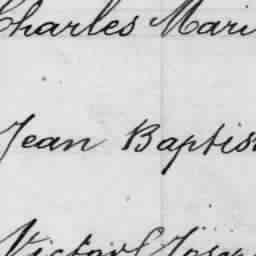 Charles Mari
Jean Baptis
Victor Josep